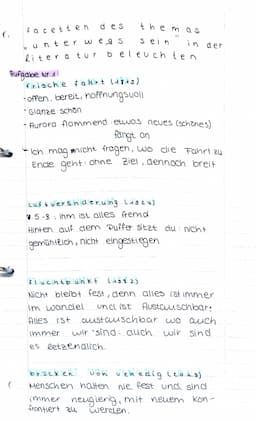 1. facetten des themas
"unterwegs sein" in der
literatur beleuchten
Aufgabe Nr. 1
frische fahrt
• offen, bereit, hoffnungsvoll
• Glänze schön
• Aurora flammend etwas neues (schönes)
fängt an
- Ich mag nicht fragen, wo die Fahrt zu
Ende geht: ohne Ziel, dennoch breit
Luftveränderung
V 5-8: Ihm ist alles fremd
Hinten auf dem Puffer sitzt du: nicht
gemütlich, nicht eingestiegen
fluchtpunkt
Nicht bleibt fest, denn alles ist immer
im Wandel und ist Austauschbar:
Alles ist austauschbar wo auch
immer wir sind: auch wir sind
es letzenalich.
brücken von venedig
Menschen halten nie fest und sind
immer neugierig, mit neuem kon-
frontiert zu werden.